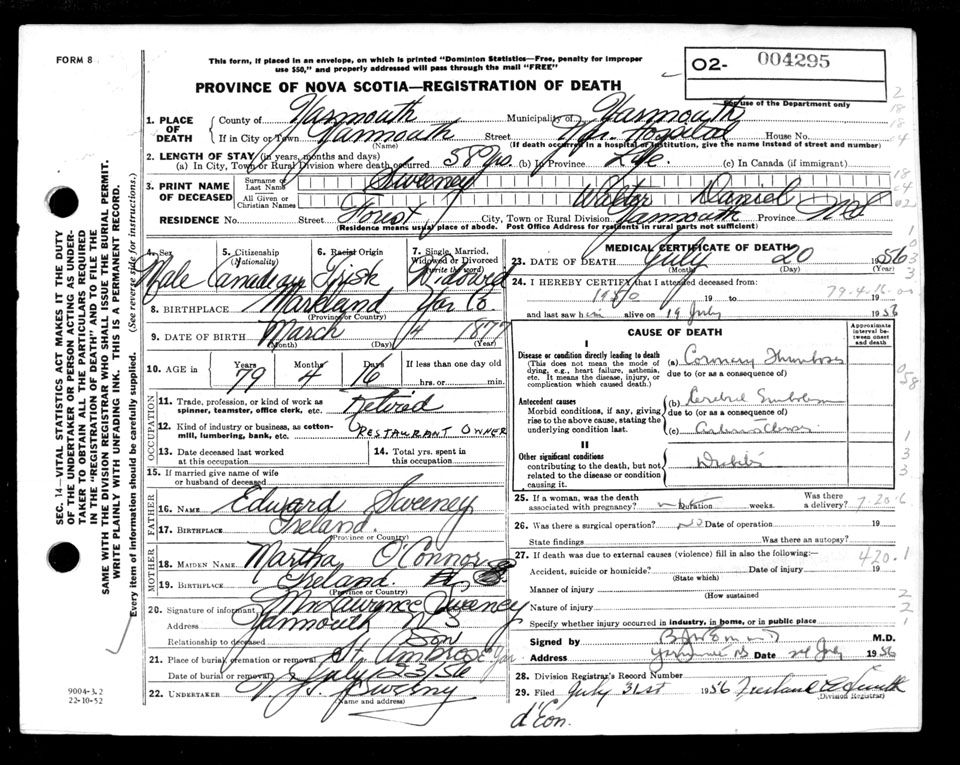 FORM 8
This form, if placed in an envelope, on which is printed "Dominion Statistics—Free, penalty for improper
use $50," and properly addressed will pass through the mail "FREE"
02- 004295
For use of the Department only
PROVINCE OF NOVA SCOTIA—REGISTRATION OF DEATH
1. PLACE OF DEATH
County of Yarmouth Municipality of Yarmouth
If in City or Town Yarmouth Street Hospital House No.
(Name) (If death occurred in a hospital or institution, give the name instead of street and number)
2. LENGTH OF STAY (in years, months and days)
(a) In City, Town or Rural Division where death occurred 58 yrs. (b) In Province Life (c) In Canada (if immigrant)
3. PRINT NAME OF DECEASED
Surname or Last Name Sweeney
All Given or Christian Names Walter Daniel
RESIDENCE No. Street Forest City, Town or Rural Division Yarmouth Province N.S.
(Residence means usual place of abode. Post Office Address for residents in rural parts not sufficient)
4. Sex Male
5. Citizenship (Nationality) Canadian
6. Racial Origin Irish
7. Single, Married, Widowed or Divorced (write the word) Widowed
8. BIRTHPLACE Markland Yar Co.
(Province or Country)
9. DATE OF BIRTH March 4 1877
(Month) (Day) (Year)
10. AGE in Years 79 Months 4 Days 16 If less than one day old
hrs. or min.
OCCUPATION
11. Trade, profession, or kind of work as spinner, teamster, office clerk, etc. Retired
12. Kind of industry or business, as cotton-mill, lumbering, bank, etc. RESTAURANT OWNER
13. Date deceased last worked at this occupation
14. Total yrs. spent in this occupation
15. If married give name of wife or husband of deceased
FATHER
16. NAME Edward Sweeney
17. BIRTHPLACE Ireland.
(Province or Country)
MOTHER
18. MAIDEN NAME Martha O'Connor
19. BIRTHPLACE Ireland.
(Province or Country)
20. Signature of informant Lawrence Sweeney
Address Yarmouth N S
Relationship to deceased Son
21. Place of burial, cremation or removal St. Ambrose Yar
Date of burial or removal July 23/56
22. UNDERTAKER V. J. Sweeny
(Name and address)
MEDICAL CERTIFICATE OF DEATH
23. DATE OF DEATH July 20 1956
(Month) (Day) (Year)
24. I HEREBY CERTIFY that I attended deceased from:
1950 19 to 19
79-4-16-00
and last saw him alive on 19 July 1956
CAUSE OF DEATH
Approximate interval between onset and death
I
Disease or condition directly leading to death
(This does not mean the mode of dying, e.g., heart failure, asthenia, etc. It means the disease, injury, or complication which caused death.)
(a) Coronary Thrombosis
due to (or as a consequence of)
Antecedent causes
Morbid conditions, if any, giving rise to the above cause, stating the underlying condition last.
(b) Cerebral Embolism
due to (or as a consequence of)
(c)
II
Other significant conditions
contributing to the death, but not related to the disease or condition causing it.
Diabetes
25. If a woman, was the death associated with pregnancy? Duration weeks. Was there a delivery? 7-20-56
26. Was there a surgical operation? no Date of operation 19
State findings Was there an autopsy?
27. If death was due to external causes (violence) fill in also the following:
420.1
Accident, suicide or homicide? Date of injury 19
(State which)
Manner of injury
(How sustained
Nature of injury
Specify whether injury occurred in industry, in home, or in public place
Signed by M.D.
Address Yarmouth NS Date July 1956
28. Division Registrar's Record Number
29. Filed July 31st 1956 Smith
(Division Registrar)
d'Eon.
SEC. 14—VITAL STATISTICS ACT MAKES IT THE DUTY
OF THE UNDERTAKER OR PERSON ACTING AS UNDER-
TAKER TO OBTAIN ALL THE PARTICULARS REQUIRED
IN THE "REGISTRATION OF DEATH" AND TO FILE THE
SAME WITH THE DIVISION REGISTRAR WHO SHALL ISSUE THE BURIAL PERMIT.
WRITE PLAINLY WITH UNFADING INK. THIS IS A PERMANENT RECORD.
Every item of information should be carefully supplied. (See reverse side for instructions.)
9004-3.2
22-10-52